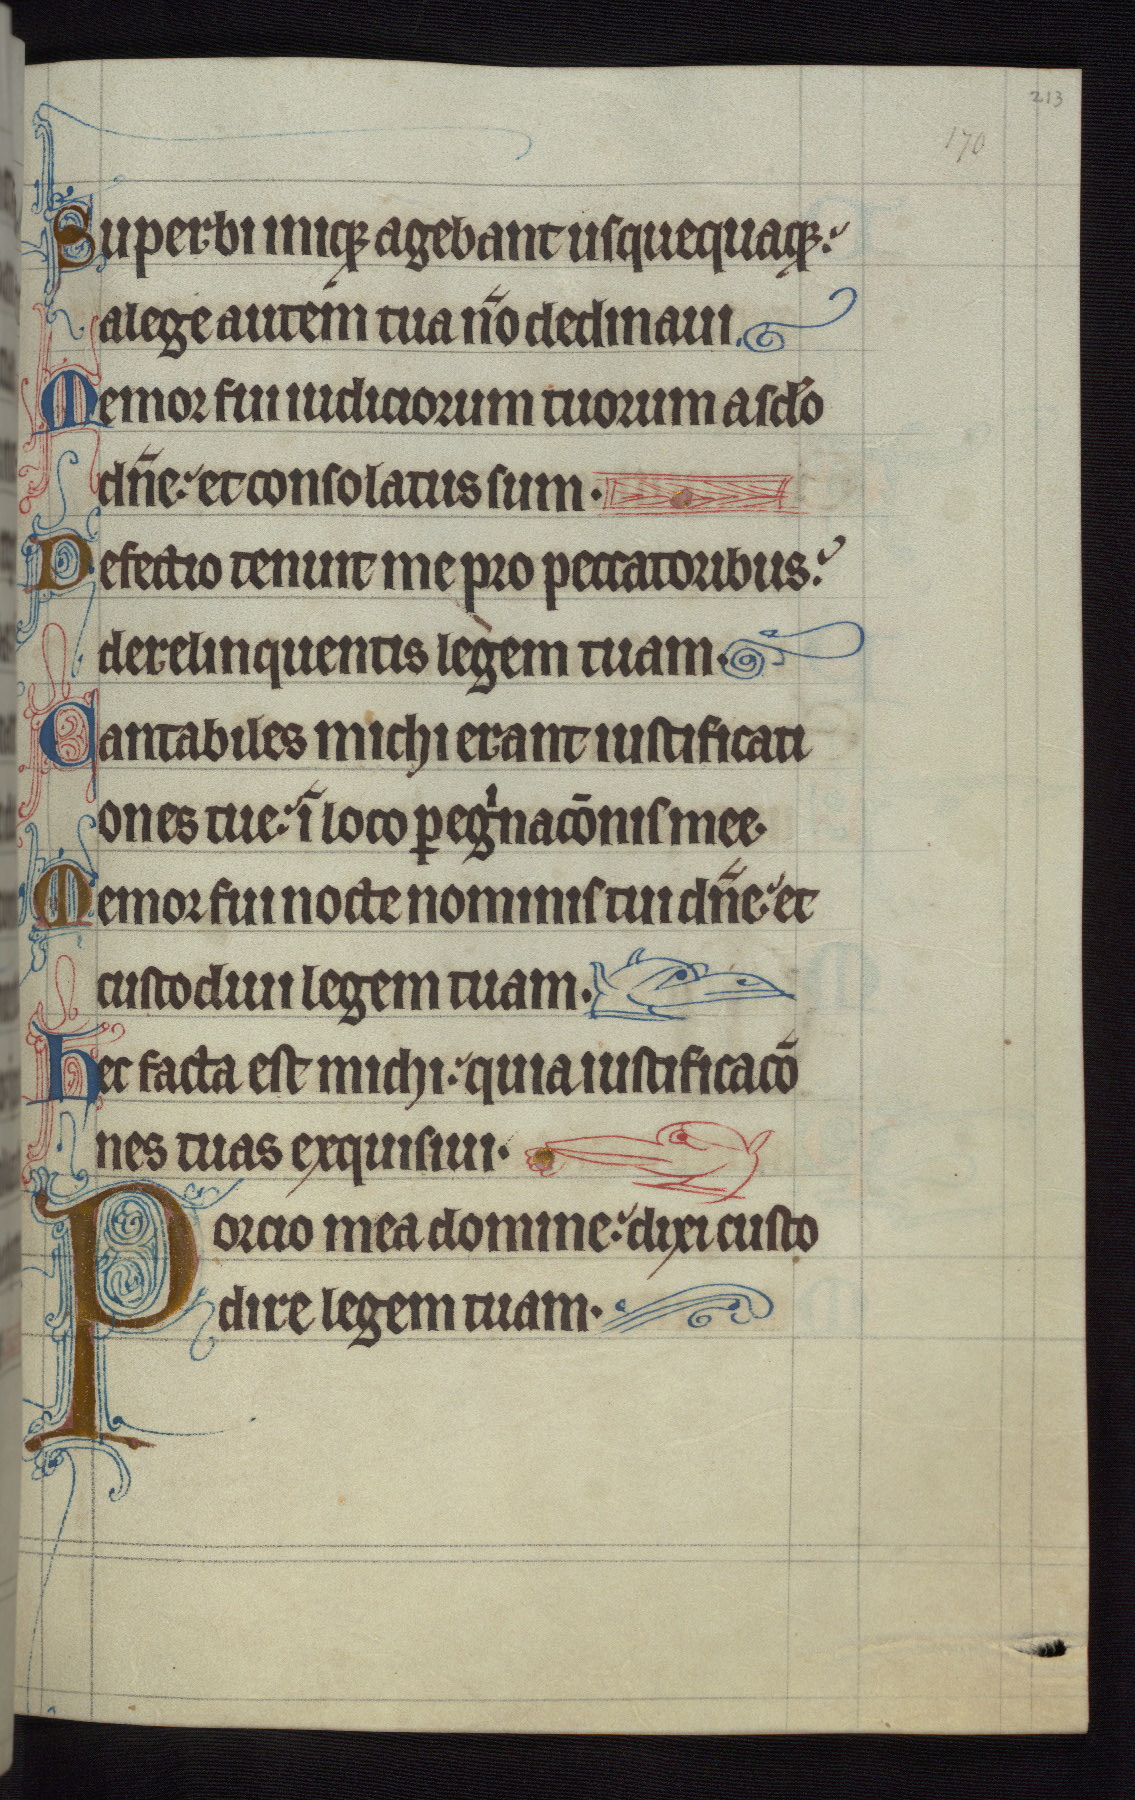 213
170
Superbi iniq̨ agebant usquequaq̨:
a lege autem̄ tua no̅ declinaui.
Memor fui iudiciorum tuorum a sc̅lo
dn̅e: et consolatus sum.
Defectio tenuit me pro peccatoribus:
derelinquentis legem tuam.
Cantabiles michi erant iustificati
ones tue: ī loco ꝑegⁱnaco̅nis mee.
Memor fui nocte nominis tui dn̅e: et
custodiui legem tuam.
Hec facta est michi: quia iustificaco̅
nes tuas exquisiui.
Porcio mea domine: dixi custo
dire legem tuam.